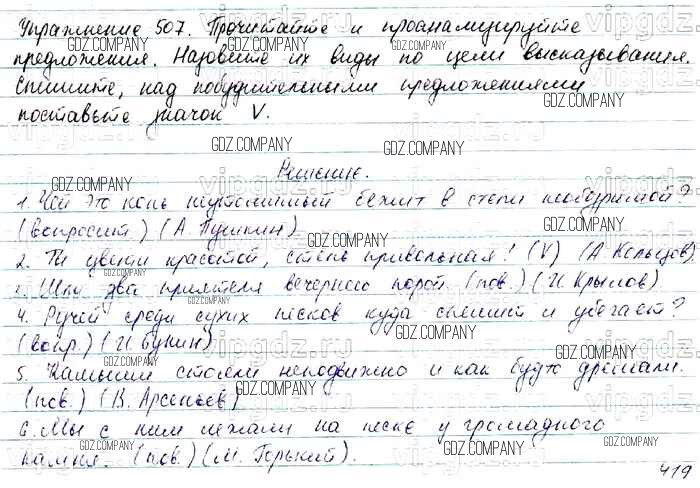 Упражнение 507. Прочитайте и проанализируйте
предложения. Назовите их виды по цели высказывания.
Спишите, над побудительными предложениями
поставьте значок V.
Решение.
1. Чей это конь неутомимый бежит в степи необозримой?
(вопросит.) (А. Пушкин)
2. Ты цвети красотой, степь привольная! (V) (А Кольцов).
3. Шли два приятеля вечернею порой. (пов.) (И. Крылов).
4. Ручей среди сухих песков куда спешит и убегает?
(вопр.) (И Бунин)
5. Камыши стояли неподвижно и как будто дремали.
(пов.) (В. Арсеньев)
6. Мы с ним лежали на песке у громадного
камня. (пов.) (М. Горький).
419
GDZ.COMPANY
vipgdz.ru